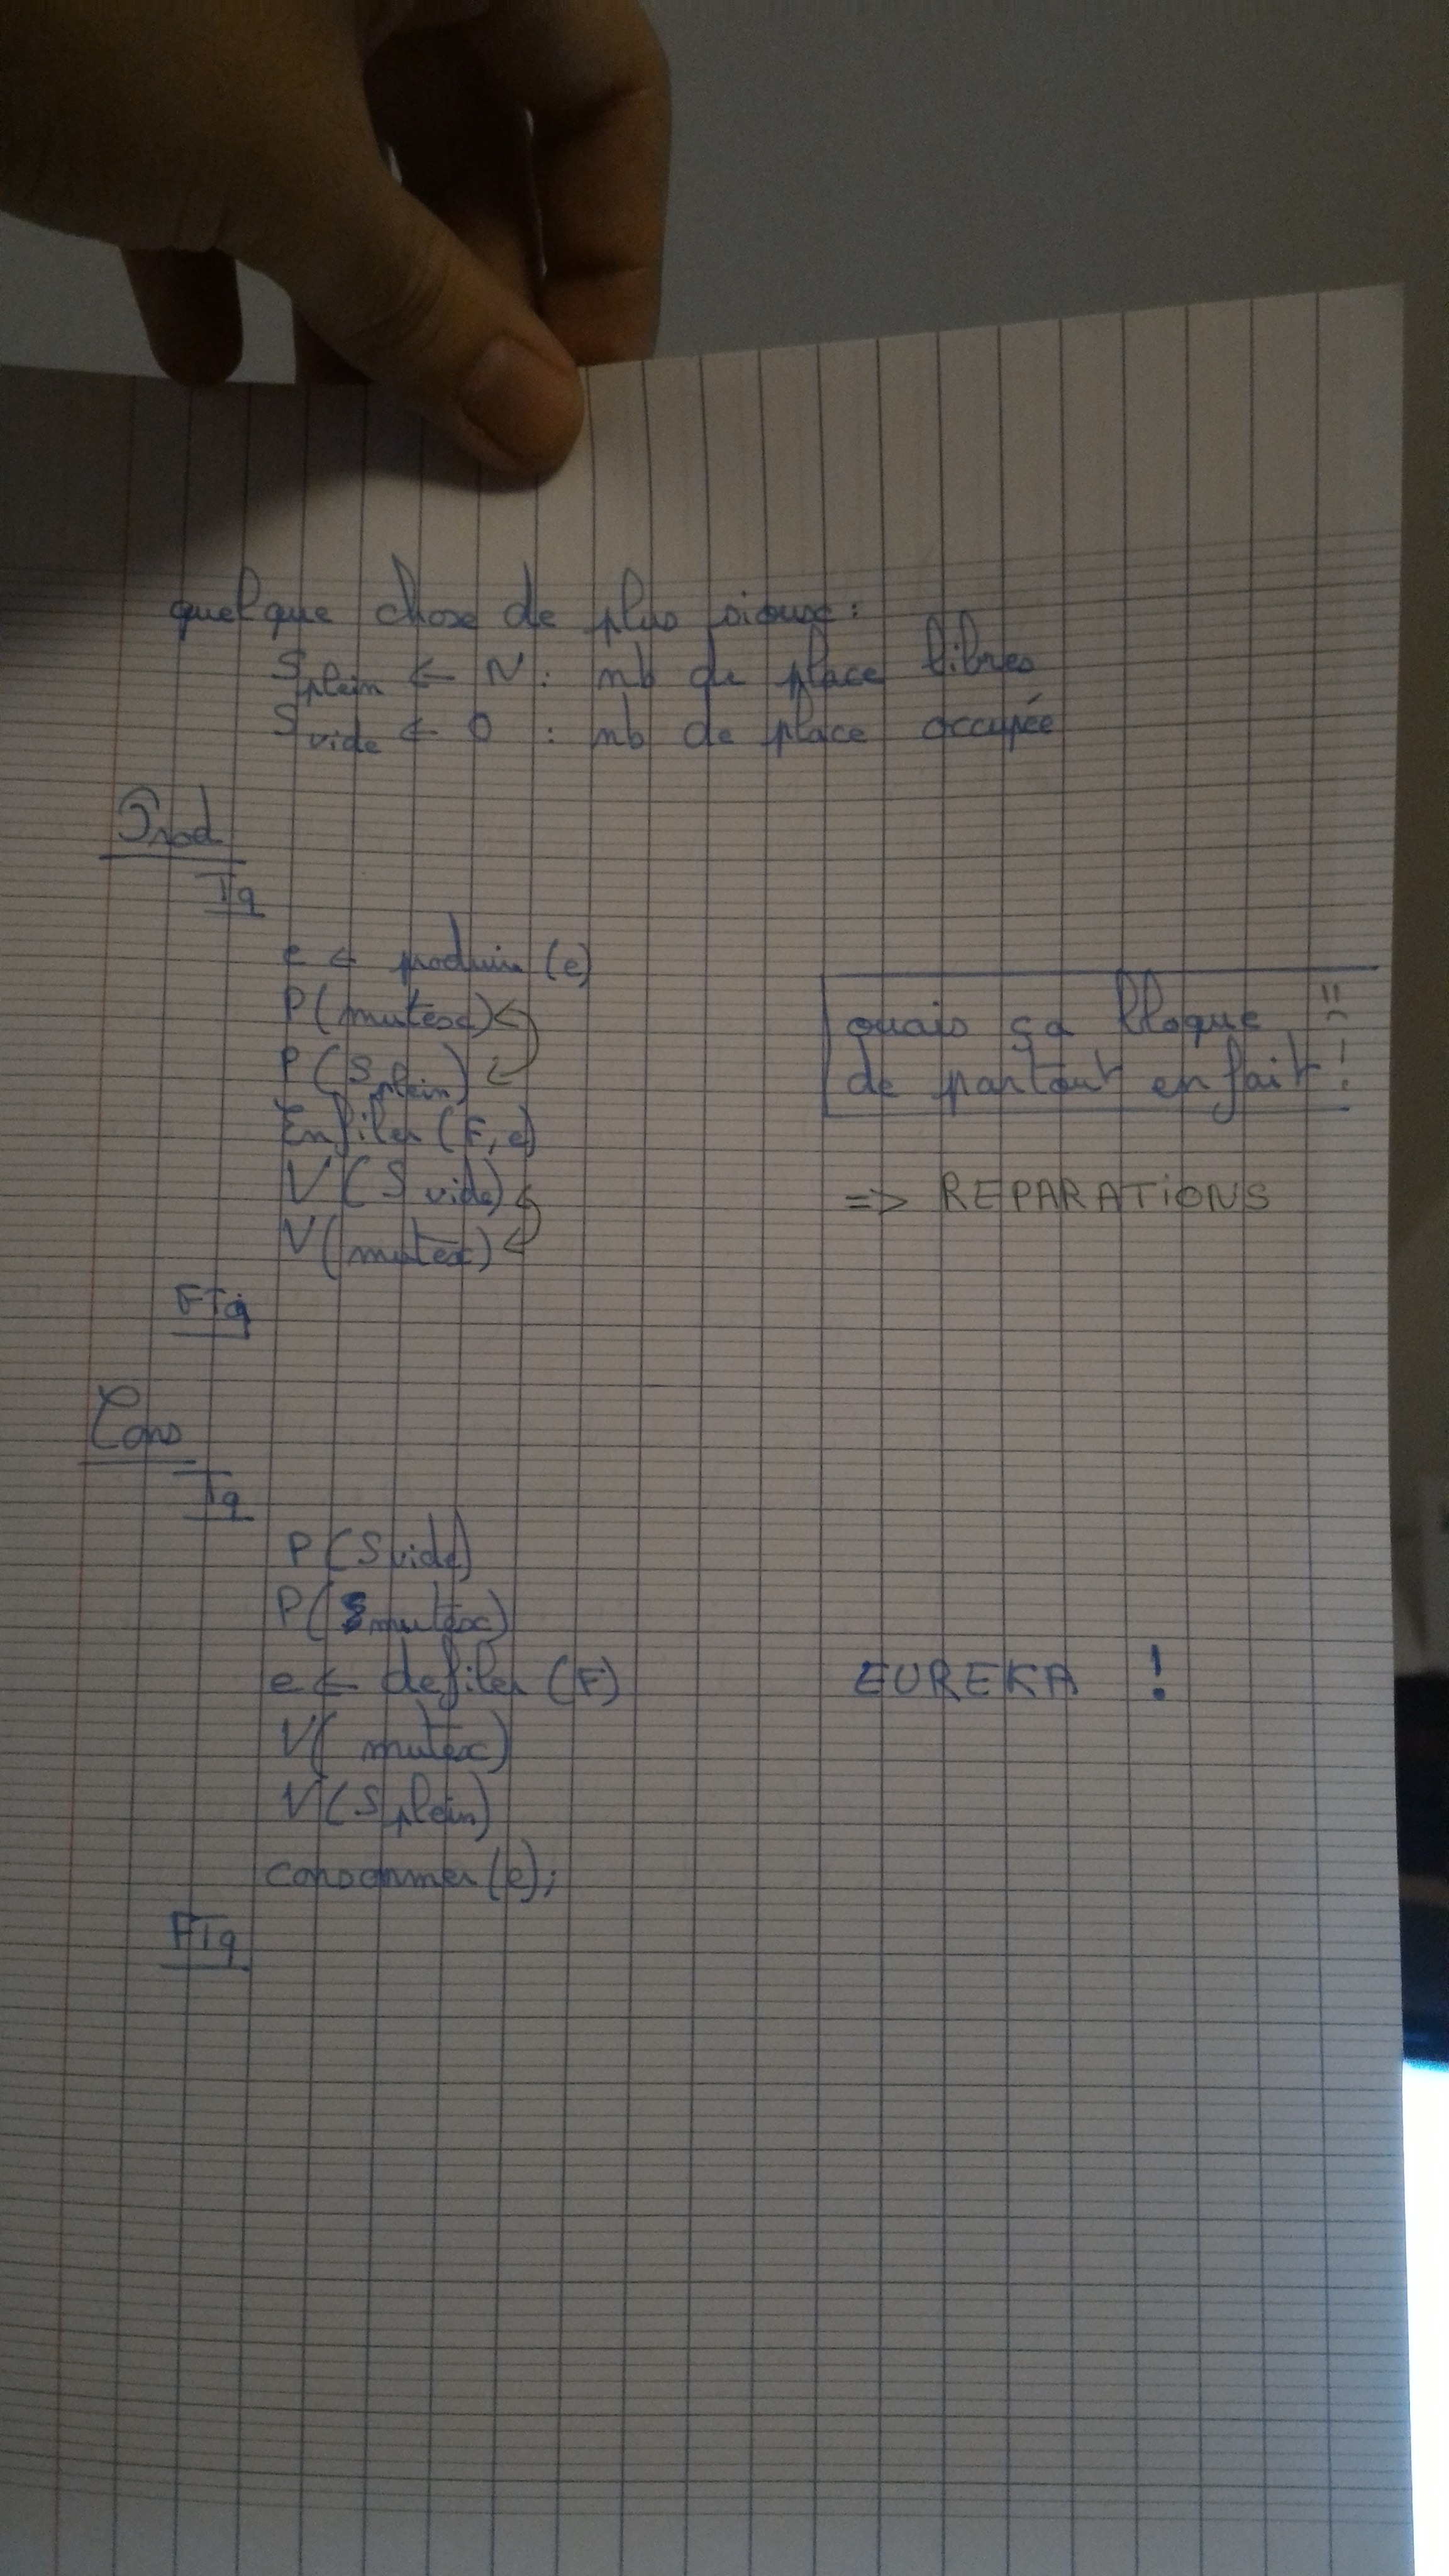 quelque chose de plus sioux :
S plein ← N : nb de place libres
S vide ← 0 : nb de place occupée
Prod
Tq
e ← produire (e)
P(mutex)
P(S plein)
Enfiler (F, e)
V(S vide)
V(mutex)
FTq
ouais ça bloque
de partout en fait !
=> REPARATIONS
Cons
Tq
P(S vide)
P(mutex)
e ← defiler (F)
V(mutex)
V(S plein)
consommer (e);
FTq
EUREKA !